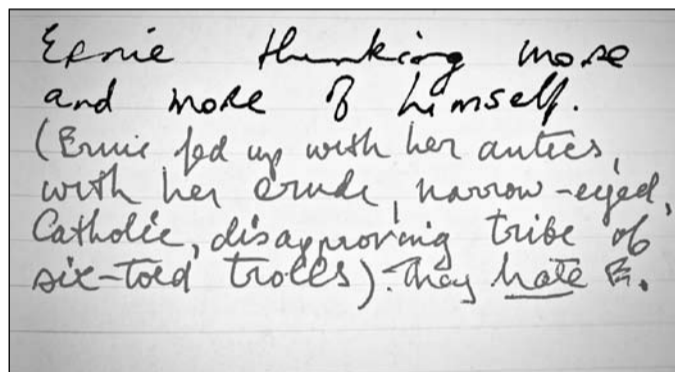 Ernie thinking more
and more of himself.
(Ernie fed up with her antics,
with her crude, narrow-eyed,
Catholic, disapproving tribe of
six-toed trolls). They hate E.